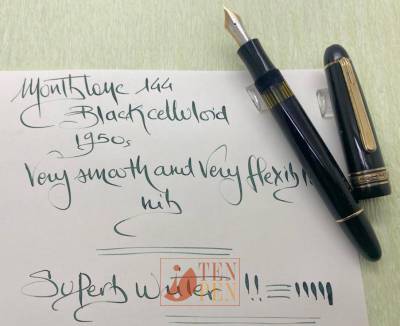 Montblanc 144
Black celluloid
1950s
Very smooth and Very flexible
nib
Superb Writer !!
TEN
PEN